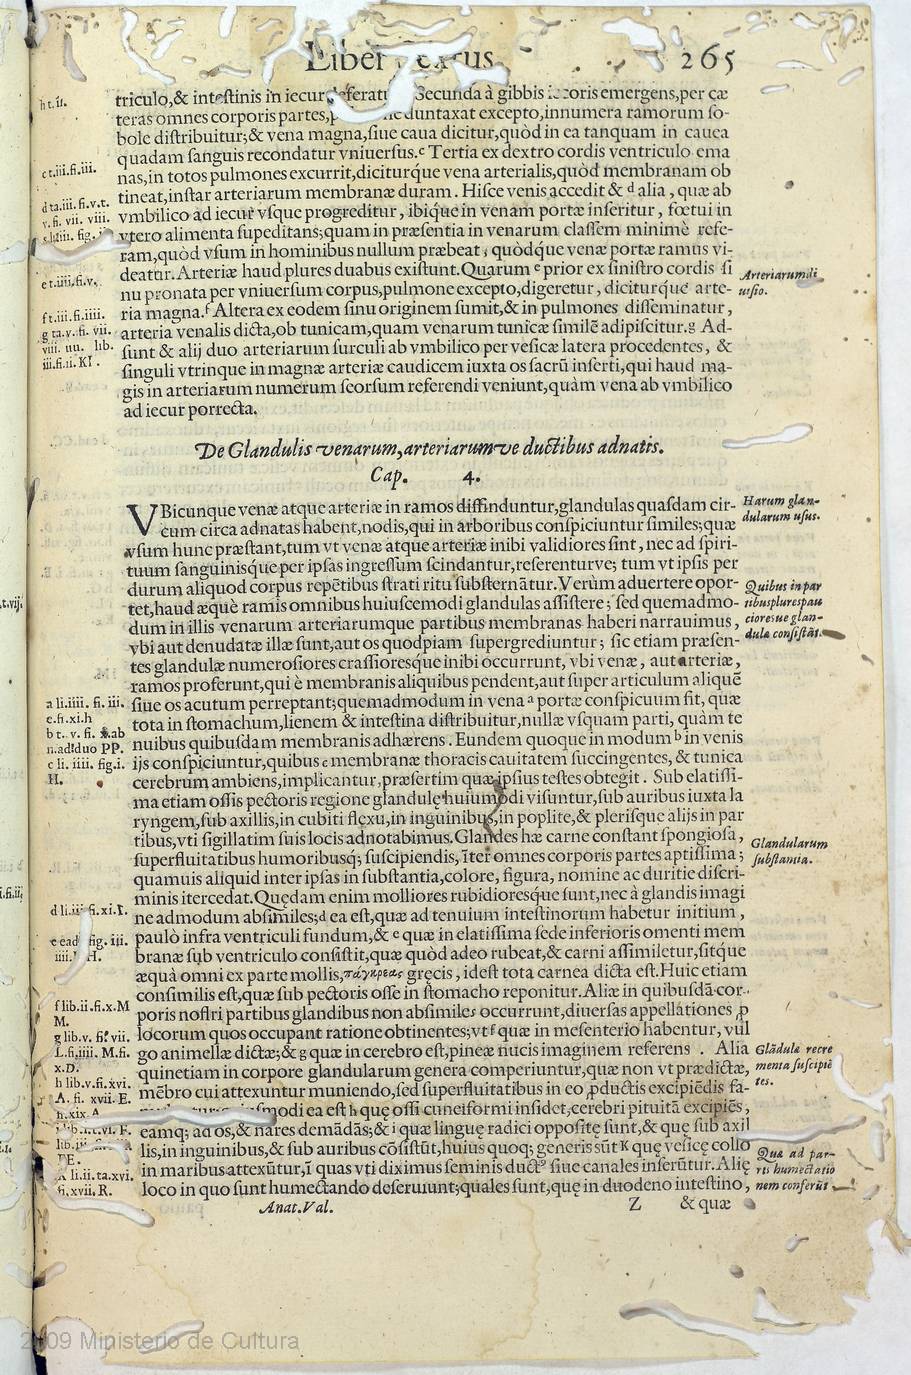 265
triculo,& inteſtinis in iecur Secunda à gibbis emergens,per cæ
teras omnes corporis partes, duntaxat excepto,innumera ramorum ſo-
bole diſtribuitur;& vena magna,ſiue caua dicitur,quòd in ea tanquam in cauea
quadam ſanguis recondatur vniuerſus.c Tertia ex dextro cordis ventriculo ema
nas,in totos pulmones excurrit,diciturq́ue vena arterialis,quòd membranam ob
tineat,inſtar arteriarum membranæ duram. Hiſce venis accedit & d alia, quæ ab
vmbilico ad iecur vſque progreditur, ibiq́ue in venam portæ inſeritur, fœtui in
vtero alimenta ſupeditans;quam in præſentia in venarum claſſem minimè refe-
ram,quòd vſum in hominibus nullum præbeat, quòdq́ue venæ portæ ramus vi-
deatur.Arteriæ haud plures duabus exiſtunt.Quarum e prior ex ſiniſtro cordis ſi
nu pronata per vniuerſum corpus,pulmone excepto,digeretur, diciturq́ue arte-
ria magna.f Altera ex eodem ſinu originem ſumit,& in pulmones diſſeminatur,
arteria venalis dicta,ob tunicam,quam venarum tunicæ ſimilẽ adipiſcitur.g Ad-
ſunt & alij duo arteriarum ſurculi ab vmbilico per veſicæ latera procedentes, &
ſinguli vtrinque in magnæ arteriæ caudicem iuxta os ſacrũ inſerti,qui haud ma-
gis in arteriarum numerum ſeorſum referendi veniunt,quàm vena ab vmbilico
ad iecur porrecta.
c t.iii.fi.iii.
d ta.iii. fi.v.t.
v. fi. vii. viii.
e t.iiii.fi.v.
f t.iii.fi.iiii.
g ta.v. fi. vii.
viii. uu. lib.
iii.fi.ii. KI.
Arteriarum di
uiſio.
De Glandulis venarum,arteriarumve ductibus adnatis.
Cap. 4.
VBicunque venæ atque arteriæ in ramos diffinduntur,glandulas quaſdam cir-
cum circa adnatas habent,nodis,qui in arboribus conſpiciuntur ſimiles;quæ
vſum hunc præſtant,tum vt venæ atque arteriæ inibi validiores ſint, nec ad ſpiri-
tuum ſanguinisq́ue per ipſas ingreſſum ſcindantur,referenturve; tum vt ipſis per
durum aliquod corpus repẽtibus ſtrati ritu ſubſternãtur.Verùm aduertere opor-
tet,haud æquè ramis omnibus huiuſcemodi glandulas aſſiſtere; ſed quemadmo-
dum in illis venarum arteriarumque partibus membranas haberi narrauimus,
vbi aut denudatæ illæ ſunt,aut os quodpiam ſupergrediuntur; ſic etiam præſen-
tes glandulæ numeroſiores craſſioresque inibi occurrunt, vbi venæ, aut arteriæ,
ramos proferunt,qui è membranis aliquibus pendent,aut ſuper articulum aliquẽ
ſiue os acutum perreptant;quemadmodum in vena a portæ conſpicuum fit, quæ
tota in ſtomachum,lienem & inteſtina diſtribuitur,nullæ vſquam parti, quàm te
nuibus quibuſdam membranis adhærens. Eundem quoque in modum b in venis
ijs conſpiciuntur,quibus c membranæ thoracis cauitatem ſuccingentes, & tunica
cerebrum ambiens,implicantur,præſertim quæ ipſius teſtes obtegit. Sub elatiſſi-
ma etiam oſſis pectoris regione glandulę huiuſmodi viſuntur,ſub auribus iuxta la
ryngem,ſub axillis,in cubiti flexu,in inguinibus,in poplite,& pleriſque alijs in par
tibus,vti ſigillatim ſuis locis adnotabimus.Glandes hæ carne conſtant ſpongioſa,
ſuperfluitatibus humoribusq́; ſuſcipiendis, ĩter omnes corporis partes aptiſſima;
quamuis aliquid inter ipſas in ſubſtantia,colore, figura, nomine ac duritie diſcri-
minis itercedat.Quędam enim molliores rubidioresq́ue ſunt,nec à glandis imagi
ne admodum abſimiles;d ea eſt,quæ ad tenuium inteſtinorum habetur initium,
paulò infra ventriculi fundum,& e quæ in elatiſſima ſede inferioris omenti mem
branæ ſub ventriculo conſiſtit,quæ quòd adeo rubeat,& carni aſſimiletur,ſitq́ue
æquà omni ex parte mollis,πάγκρεας gręcis, ideſt tota carnea dicta eſt.Huic etiam
conſimilis eſt,quæ ſub pectoris oſſe in ſtomacho reponitur.Aliæ in quibuſdã cor-
poris noſtri partibus glandibus non abſimiles occurrunt,diuerſas appellationes ꝓ
locorum quos occupant ratione obtinentes;vt f quæ in meſenterio habentur, vul
go animellæ dictæ;& g quæ in cerebro eſt,pineæ nucis imaginem referens . Alia
quinetiam in corpore glandularum genera comperiuntur,quæ non vt prædictæ,
mẽbro cui attexuntur muniendo,ſed ſuperfluitatibus in eo ꝓductis excipiẽdis fa-
modi ea eſt h quę oſſi cuneiformi inſidet,cerebri pituitã excipiẽs,
eamq; ad os,& nares demãdãs;& i quæ linguę radici oppoſitę ſunt,& quę ſub axil
lis,in inguinibus,& ſub auribus cõſiſtũt,huius quoq; generis sũt K quę veſicę collo
in maribus attexũtur,ĩ quas vti diximus ſeminis ductꝰ ſiue canales inſerũtur.Alię
loco in quo ſunt humectando deſeruiunt;quales ſunt,quę in duodeno inteſtino,
Anat.Val. Z & quæ
Harum glan-
dularum uſus.
Quibus in par
tibus plures pau
cioresue glan-
dulæ conſiſtãt.
a li.iiii. fi. iii.
e.fi.xi.h
b t. v. fi. x.ab
n.ad duo PP.
c li. iiii. fig.i.
H.
Glandularum
ſubſtantia.
f lib.ii.fi.x.M
M.
g lib.v. fi. vii.
L.fi.iiii. M.fi.
x.D.
h lib.v.fi.xvi.
A. fi. xvii. E.
Glãdulæ recre
menta ſuſcipiẽ
tes.
Quæ ad par-
tis humectatio
nem conferũt
fi.xvii. R.
2009 Ministerio de Cultura